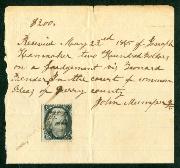 $200.
Received May 23th 1865 of Joseph
Hannaker two Hundred Dollars
on a Judgement vs Leonard
Bender in the court of common
Pleas of Perry county
John Mumper